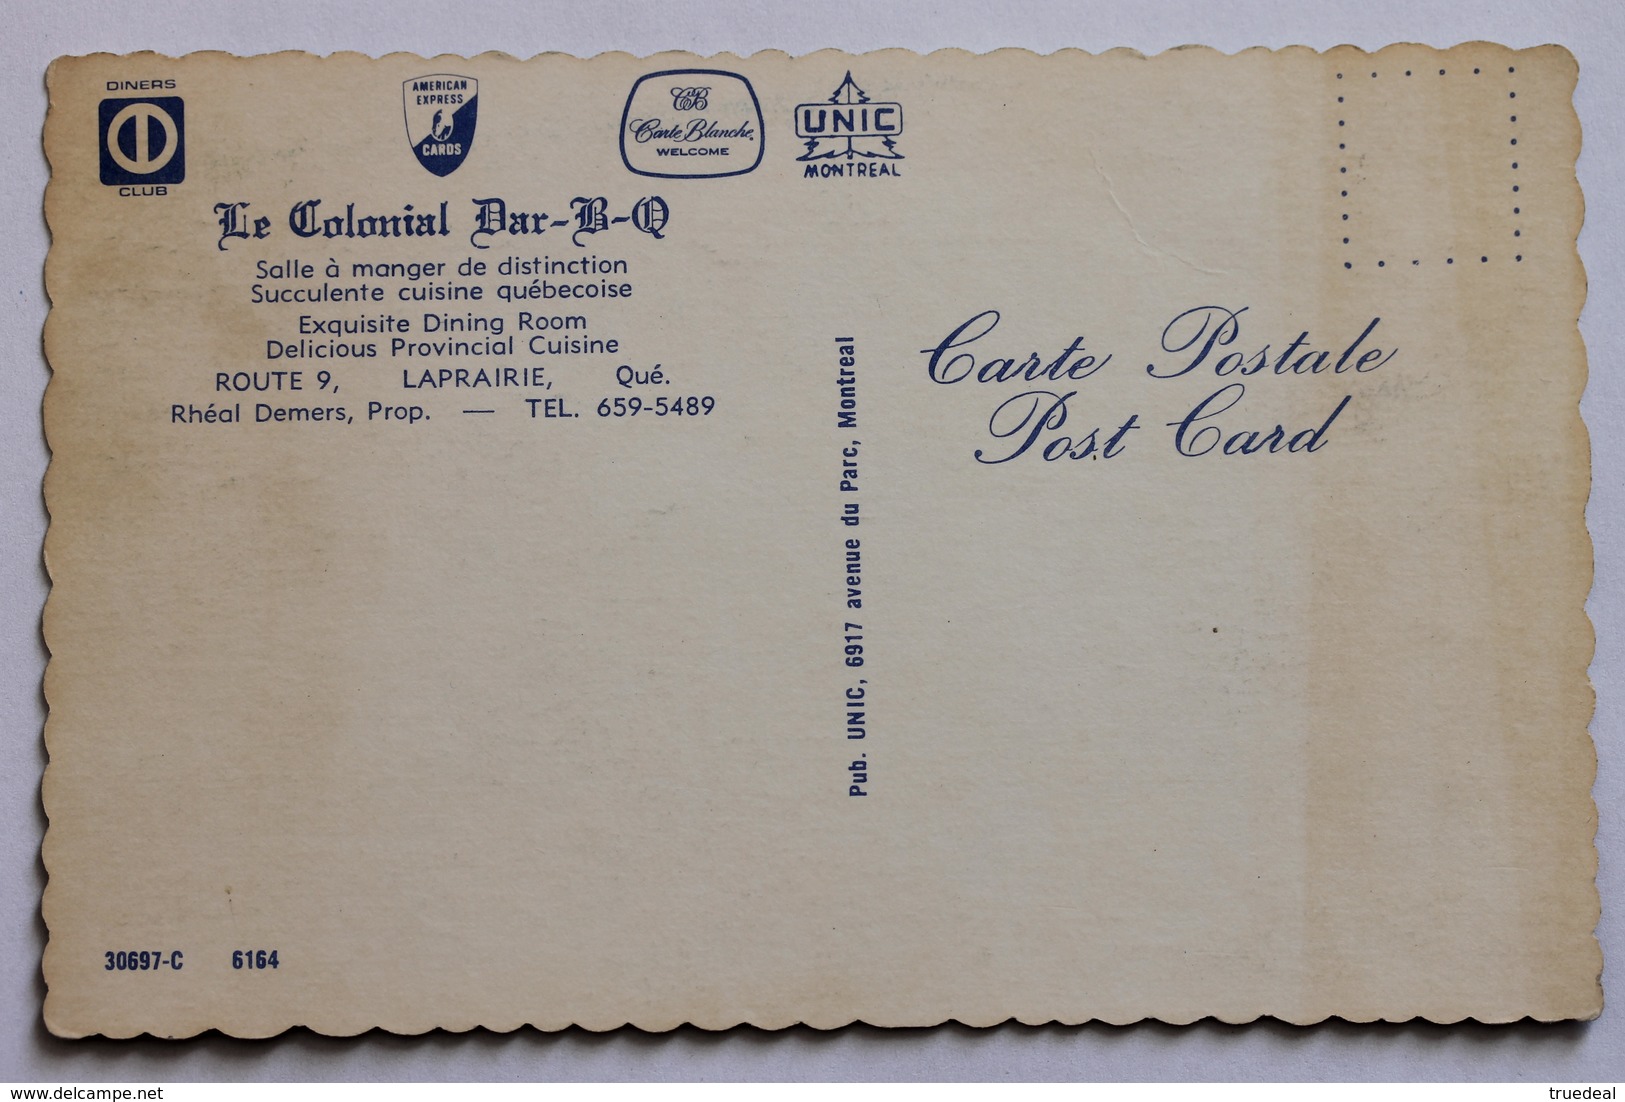 DINERS
CLUB
AMERICAN
EXPRESS
CARDS
CB
Carte Blanche
WELCOME
UNIC
MONTREAL
Le Colonial Dar-B-Q
Salle à manger de distinction
Succulente cuisine québecoise
Exquisite Dining Room
Delicious Provincial Cuisine
ROUTE 9, LAPRAIRIE, Qué.
Rhéal Demers, Prop. — TEL. 659-5489
Pub. UNIC, 6917 avenue du Parc, Montreal
Carte Postale
Post Card
30697-C 6164
www.delcampe.net
truedeal